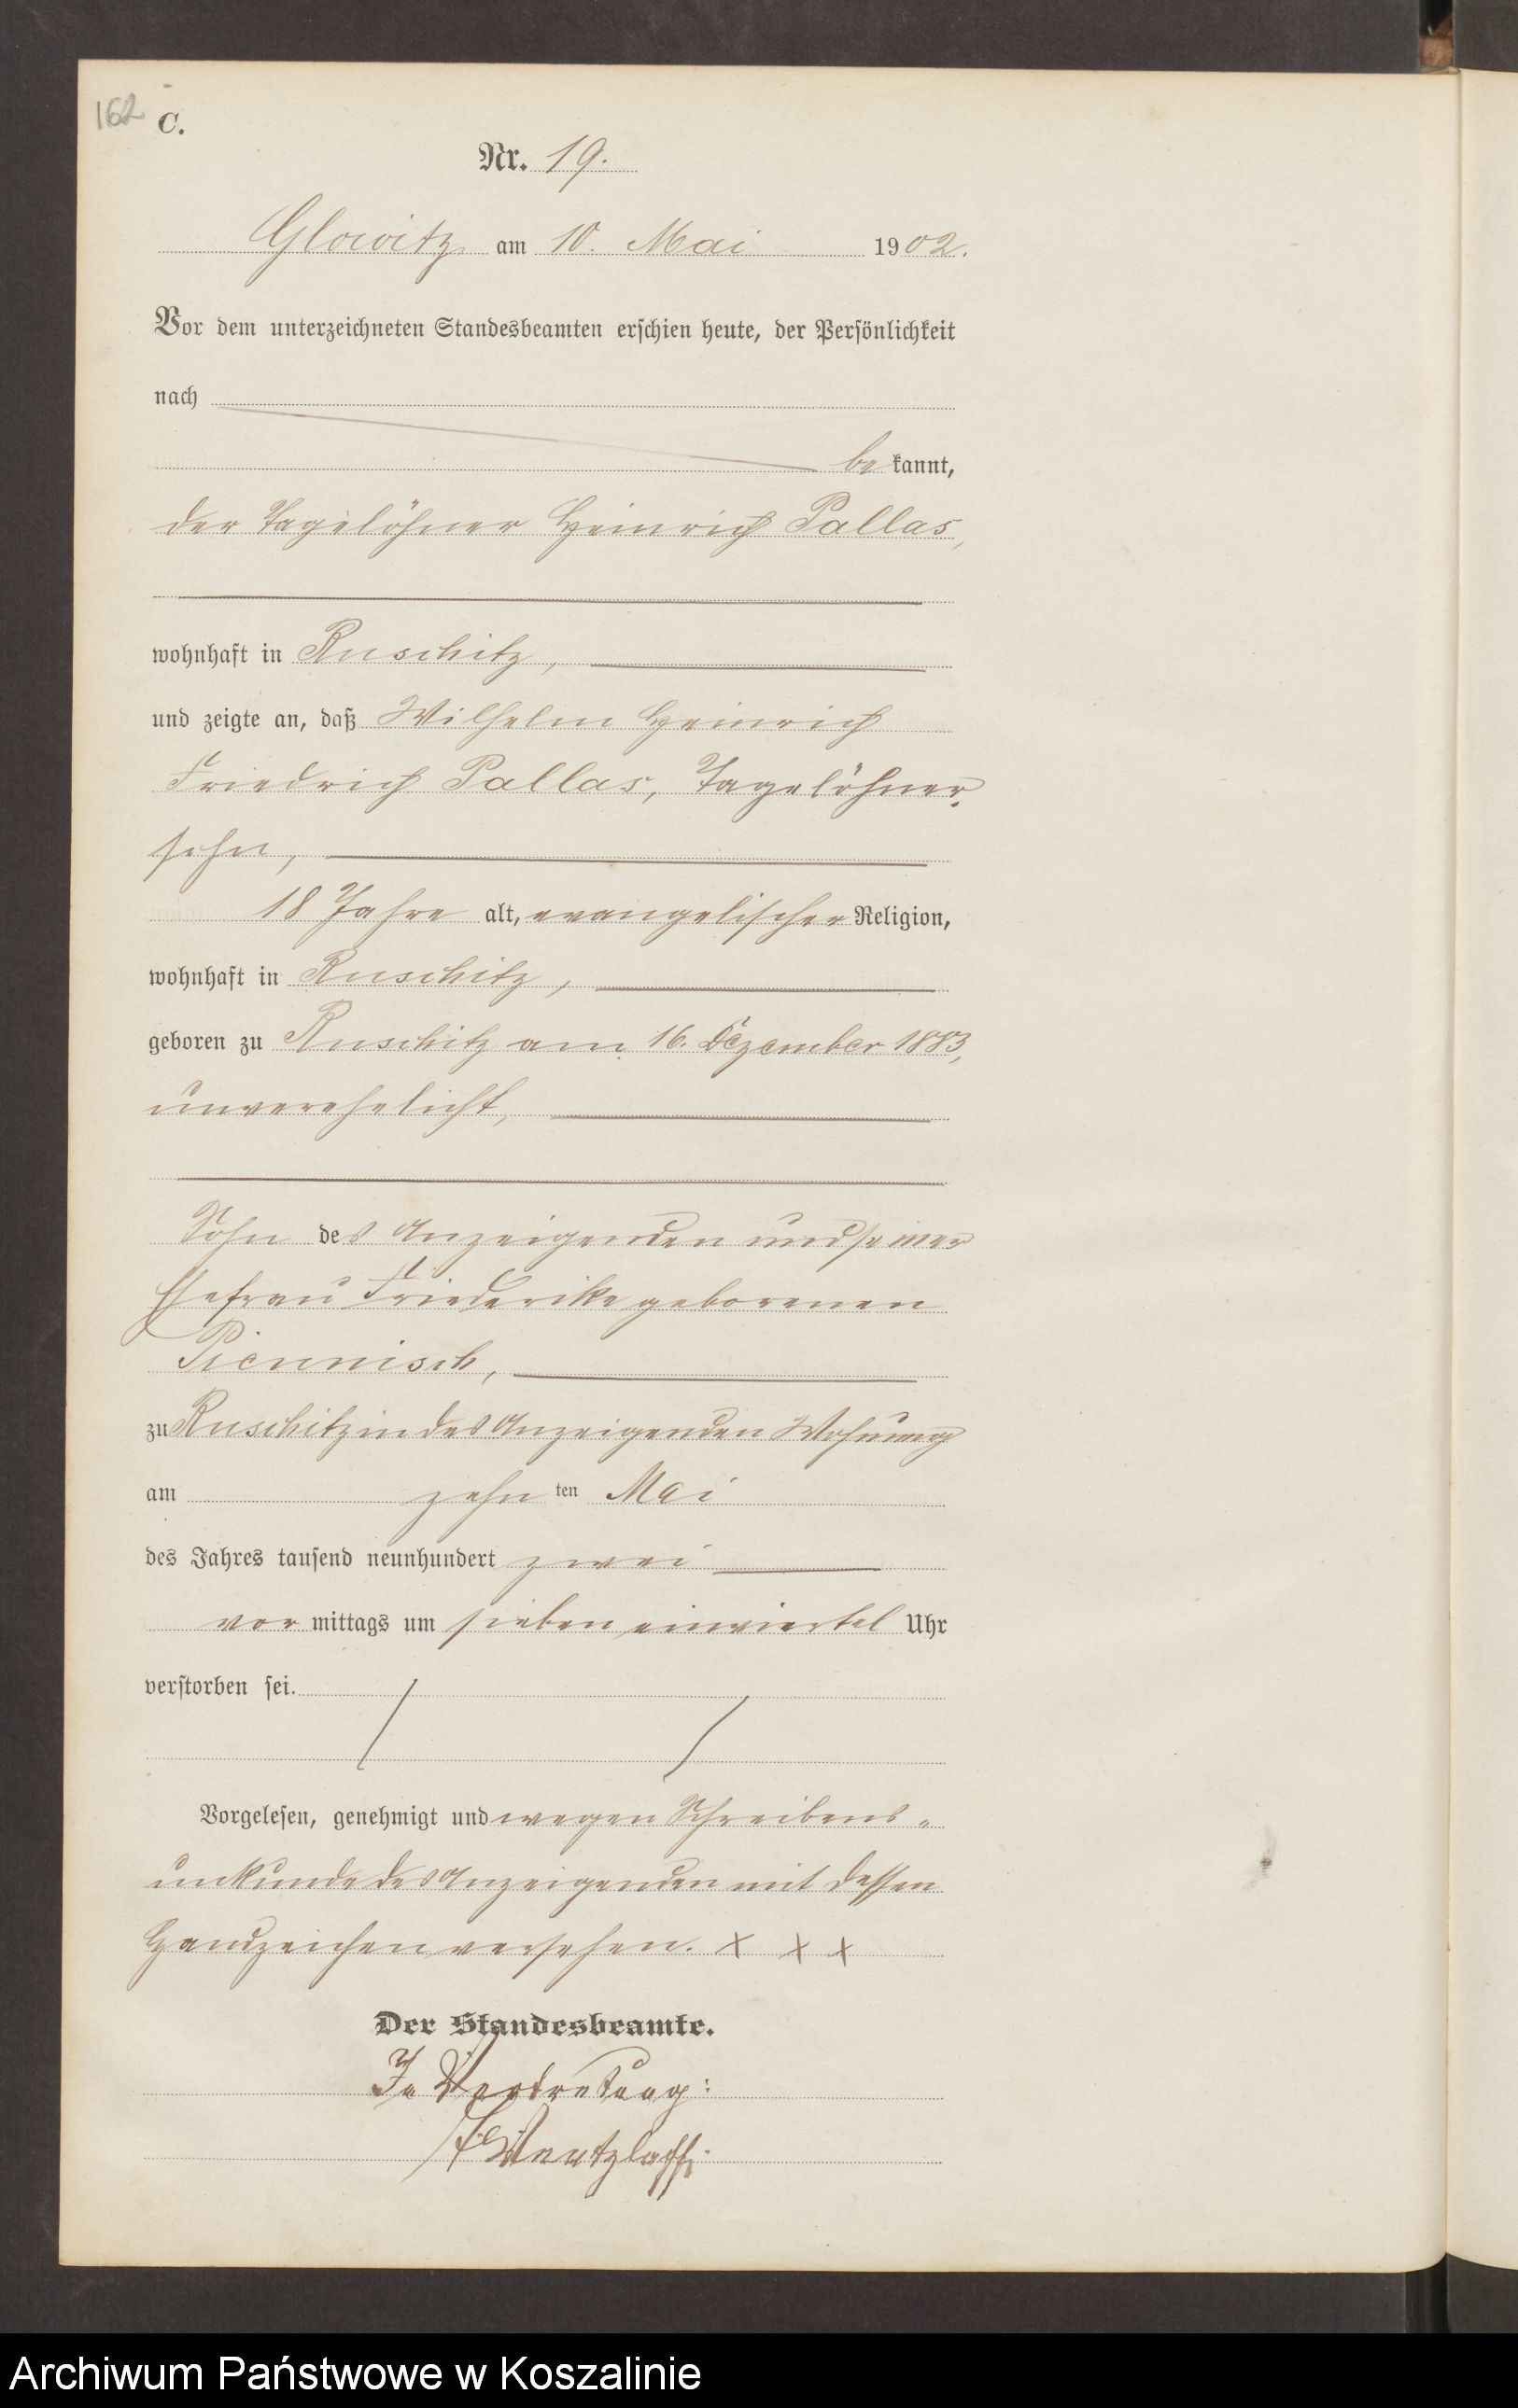 162 C.
Nr. 19.
Glowitz am 10. Mai 1902.
Vor dem unterzeichneten Standesbeamten erschien heute, der Persönlichkeit
nach
bekannt,
der Tagelöhner Heinrich Pallas,
wohnhaft in Ruschitz,
und zeigte an, daß Wilhelm Heinrich
Friedrich Pallas, Tagelöhner-
sohn,
18 Jahre alt, evangelischer Religion,
wohnhaft in Ruschitz,
geboren zu Ruschitz am 16. Dezember 1883,
unverehelicht,
Sohn des Anzeigenden und seiner
Ehefrau Friederike geborenen
Piennisch,
zu Ruschitz in des Anzeigenden Wohnung
am zehn ten Mai
des Jahres tausend neunhundert zwei
vor mittags um sieben einviertel Uhr
verstorben sei.
Vorgelesen, genehmigt und wegen Schreibens-
unkunde des Anzeigenden mit dessen
Handzeichen versehen. x x x
Der Standesbeamte.
In Vertretung:
Wentzlaff.
Archiwum Państwowe w Koszalinie